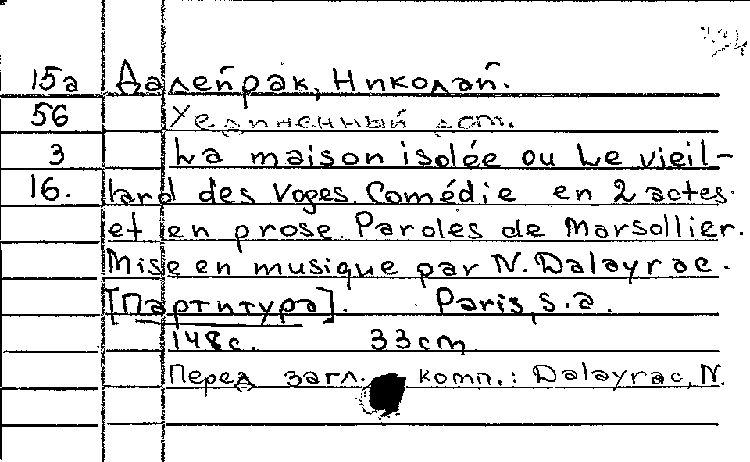 15а Далейрак, Николай.
56 Уединенный дом.
3 La maison isolée ou Le vieil-
16. lard des Voges. Comédie en 2 actes
et en prose. Paroles de Marsollier.
Mise en musique par N. Dalayrac.
[Партитура]. Paris, s.a.
148 с. 33 cm
Перед загл. комп.: Dalayrac, N.